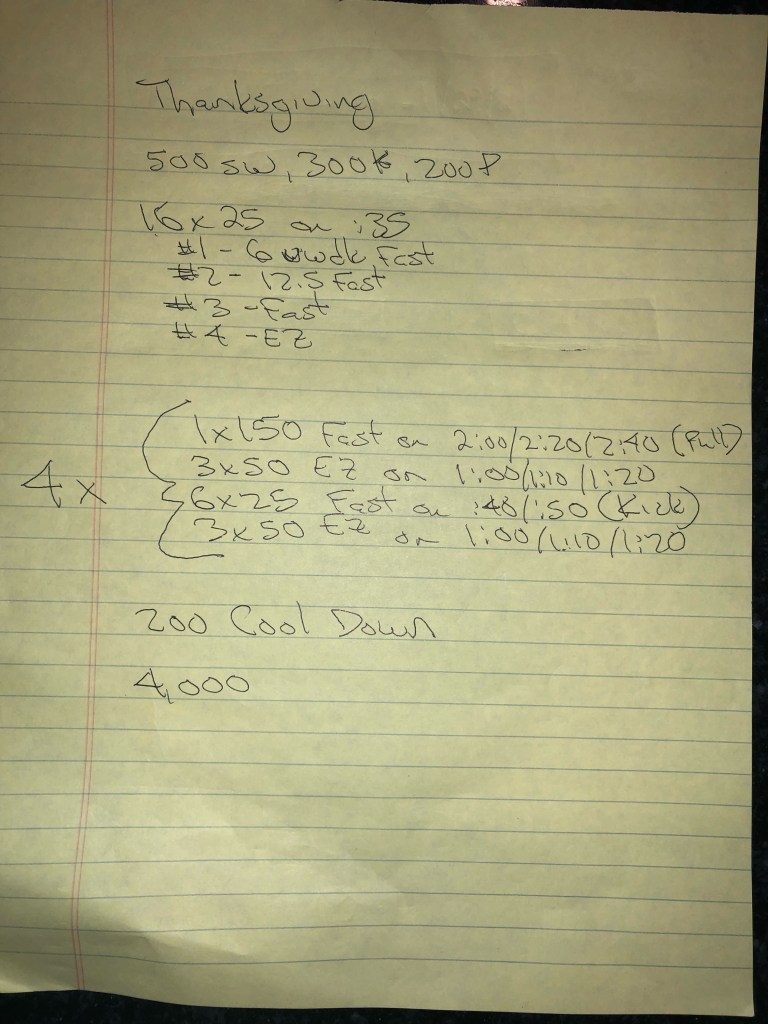 Thanksgiving
500 sw, 300K, 200P
16x25 on :35
#1 - 6 uwdk Fast
#2 - 12.5 Fast
#3 - Fast
#4 - EZ
1x150 Fast on 2:00/2:20/2:40 (Pull)
3x50 EZ on 1:00/1:10/1:20
4x
6x25 Fast on :40/:50 (Kick)
3x50 EZ on 1:00/1:10/1:20
200 Cool Down
4,000